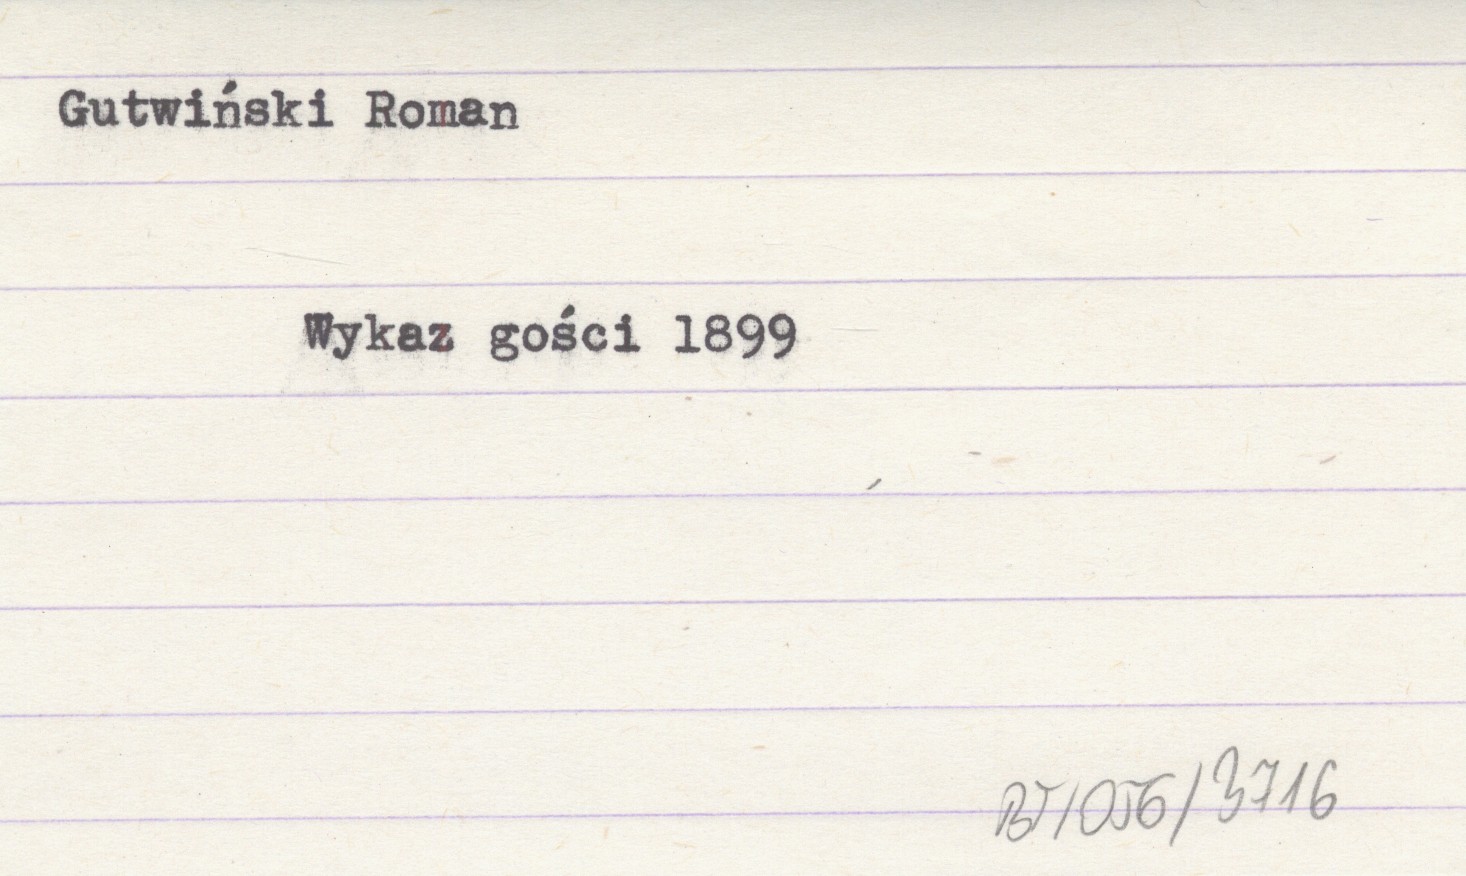 Gutwiński Roman
Wykaz gości 1899
BJ/056/3716